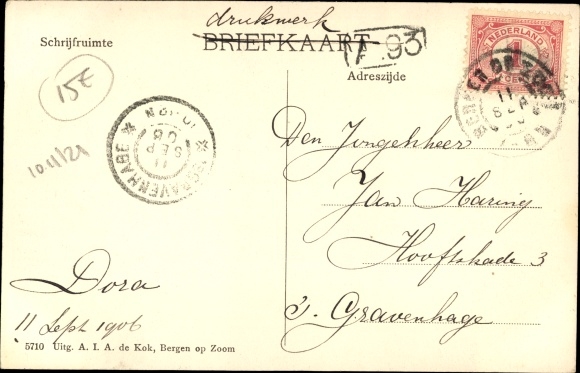 drukwerk
Schrijfruimte
BRIEFKAART
A.93
NEDERLAND
1
CENT
Adreszijde
15€
10-11/21
'SGRAVENHAGE
11
SEP
Den Jongeheer
Jan Haring
Hooftskade 3
's. Gravenhage
Dora
11 Sept 1906
5710 Uitg. A. I. A. de Kok, Bergen op Zoom